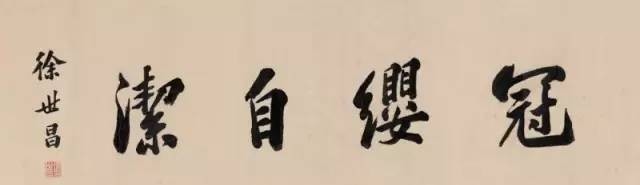 冠纓自潔
徐世昌